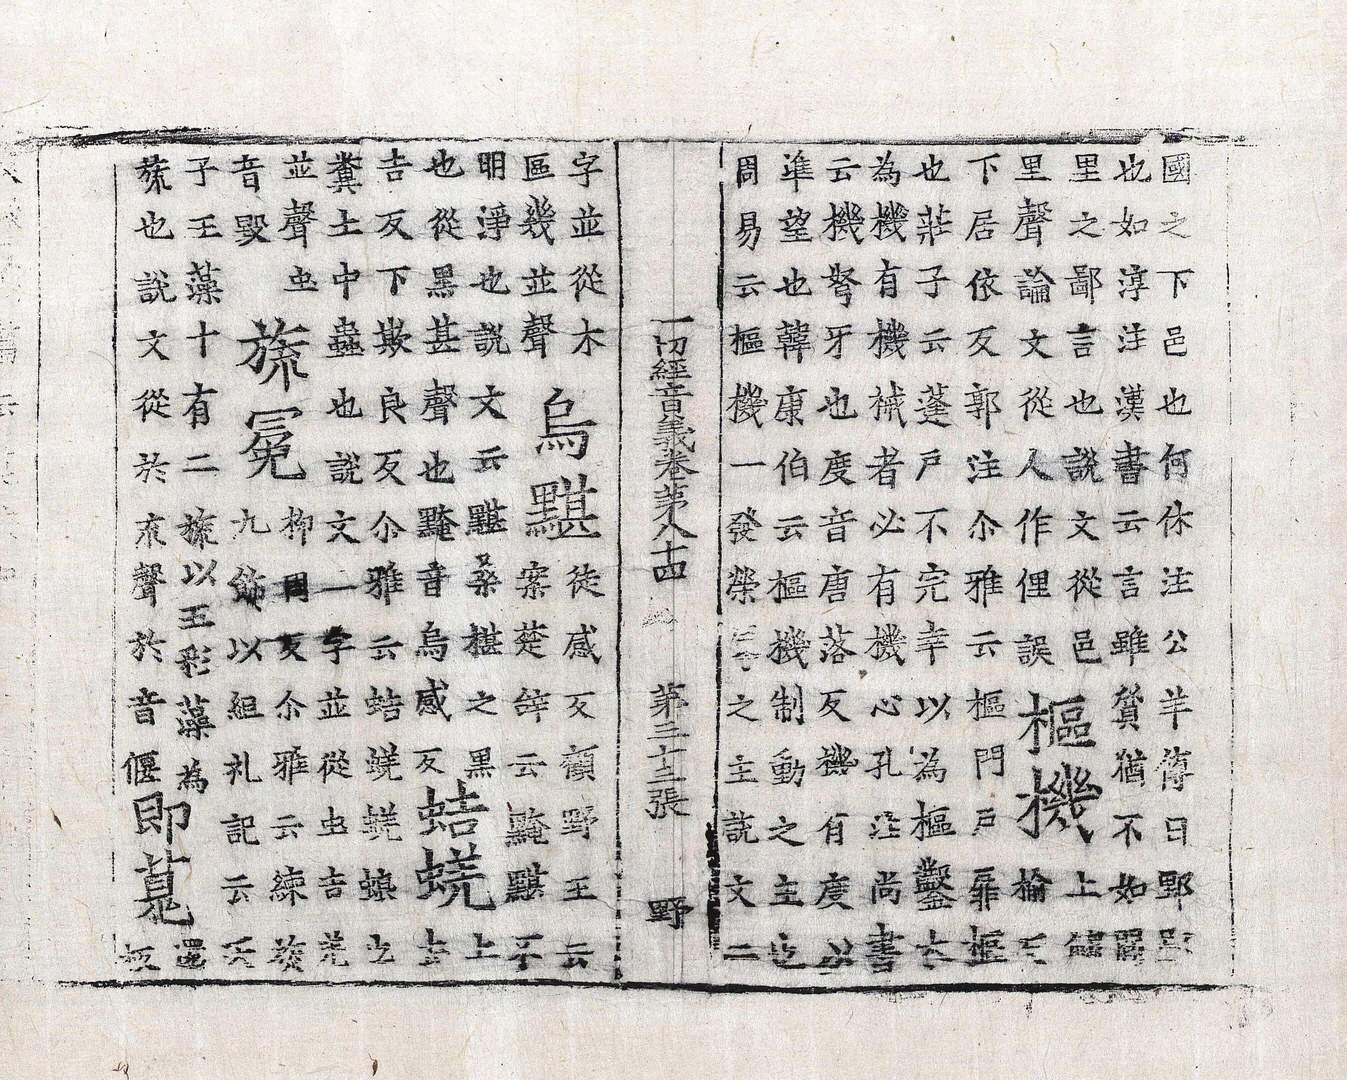 國之下邑也何休注公羊傳曰鄙
也如淳注漢書云言雖質猶不如
里之鄙言也說文從邑上
里聲論文從人作俚誤樞機
下居依反郭注尒雅云樞門戶扉樞
也莊子云蓬戶不完幸以為樞鑿木
為機有機械者必有機心孔注尚書
云機弩牙也度音唐落反機有度以
准望也韓康伯云樞機制動之主也
周易云樞機一發榮辱之主說文二
一切經音義卷第八十四 第三十三張 野
字並從木烏黮徒感反顧野王云
區幾並聲案楚辞云黤黮不
明淨也說文云黮桑椹之黑上
也從黑甚聲也黤音烏感反蛣蜣
吉反下欺良反尒雅云蛣蜣蜣螂也
糞土中蟲也說文二字並從虫吉羌
並聲虫旒冕柳周反尒雅云練旒
音毀九飾以組礼記云天
子玉藻十有二旒以五彩藻為
旒也說文從㫃㐬聲㫃音偃即墓還